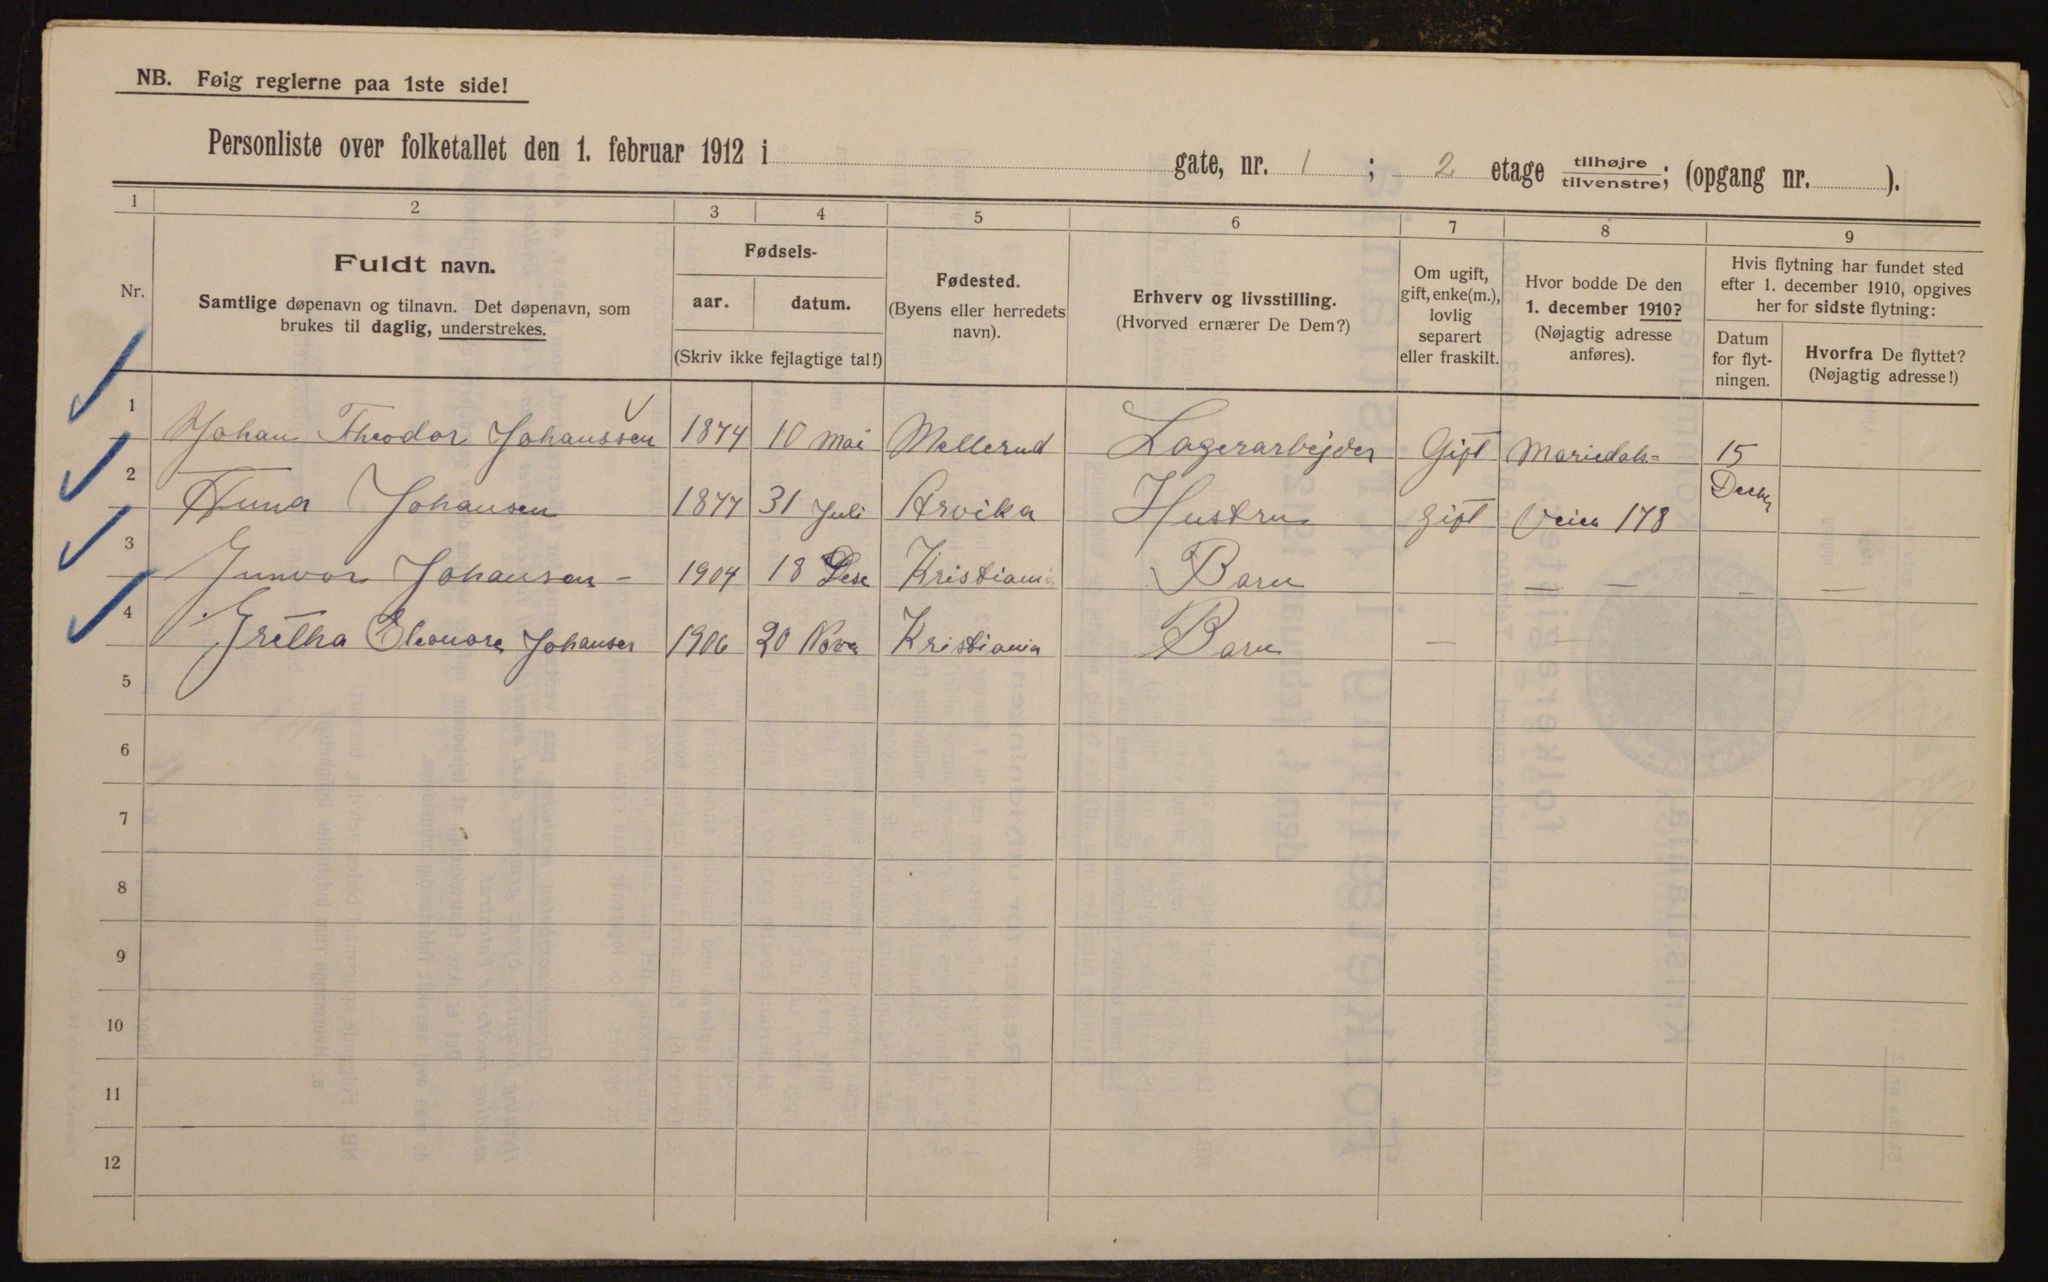 NB. Følg reglerne paa 1ste side!
Personliste over folketallet den 1. februar 1912 i gate, nr. 1 ; 2 etage tilhøjre/tilvenstre; (opgang nr. ).
1 2 3 4 5 6 7 8 9
Nr.
Fuldt navn.
Samtlige døpenavn og tilnavn. Det døpenavn, som
brukes til daglig, understrekes.
Fødsels-
aar. datum.
(Skriv ikke fejlagtige tal!)
Fødested.
(Byens eller herredets
navn).
Erhverv og livsstilling.
(Hvorved ernærer De Dem?)
Om ugift,
gift, enke(m.),
lovlig
separert
eller fraskilt.
Hvor bodde De den
1. december 1910?
(Nøjagtig adresse
anføres).
Hvis flytning har fundet sted
efter 1. december 1910, opgives
her for sidste flytning:
Datum
for flyt-
ningen.
Hvorfra De flyttet?
(Nøjagtig adresse!)
1 Johan Theodor Johanssen 1874 10 Mai Mellerud Lagerarbejder Gift Mariedals= 15
2 Anna Johansen 1877 31 Juli Arvika Hustru gift Veien 178
3 Gunvor Johansen - 1904 18 Kristiania Barn — — — —
4 Gretha Eleonora Johansen 1906 20 Kristiania Barn — —
5
6
7
8
9
10
11
12